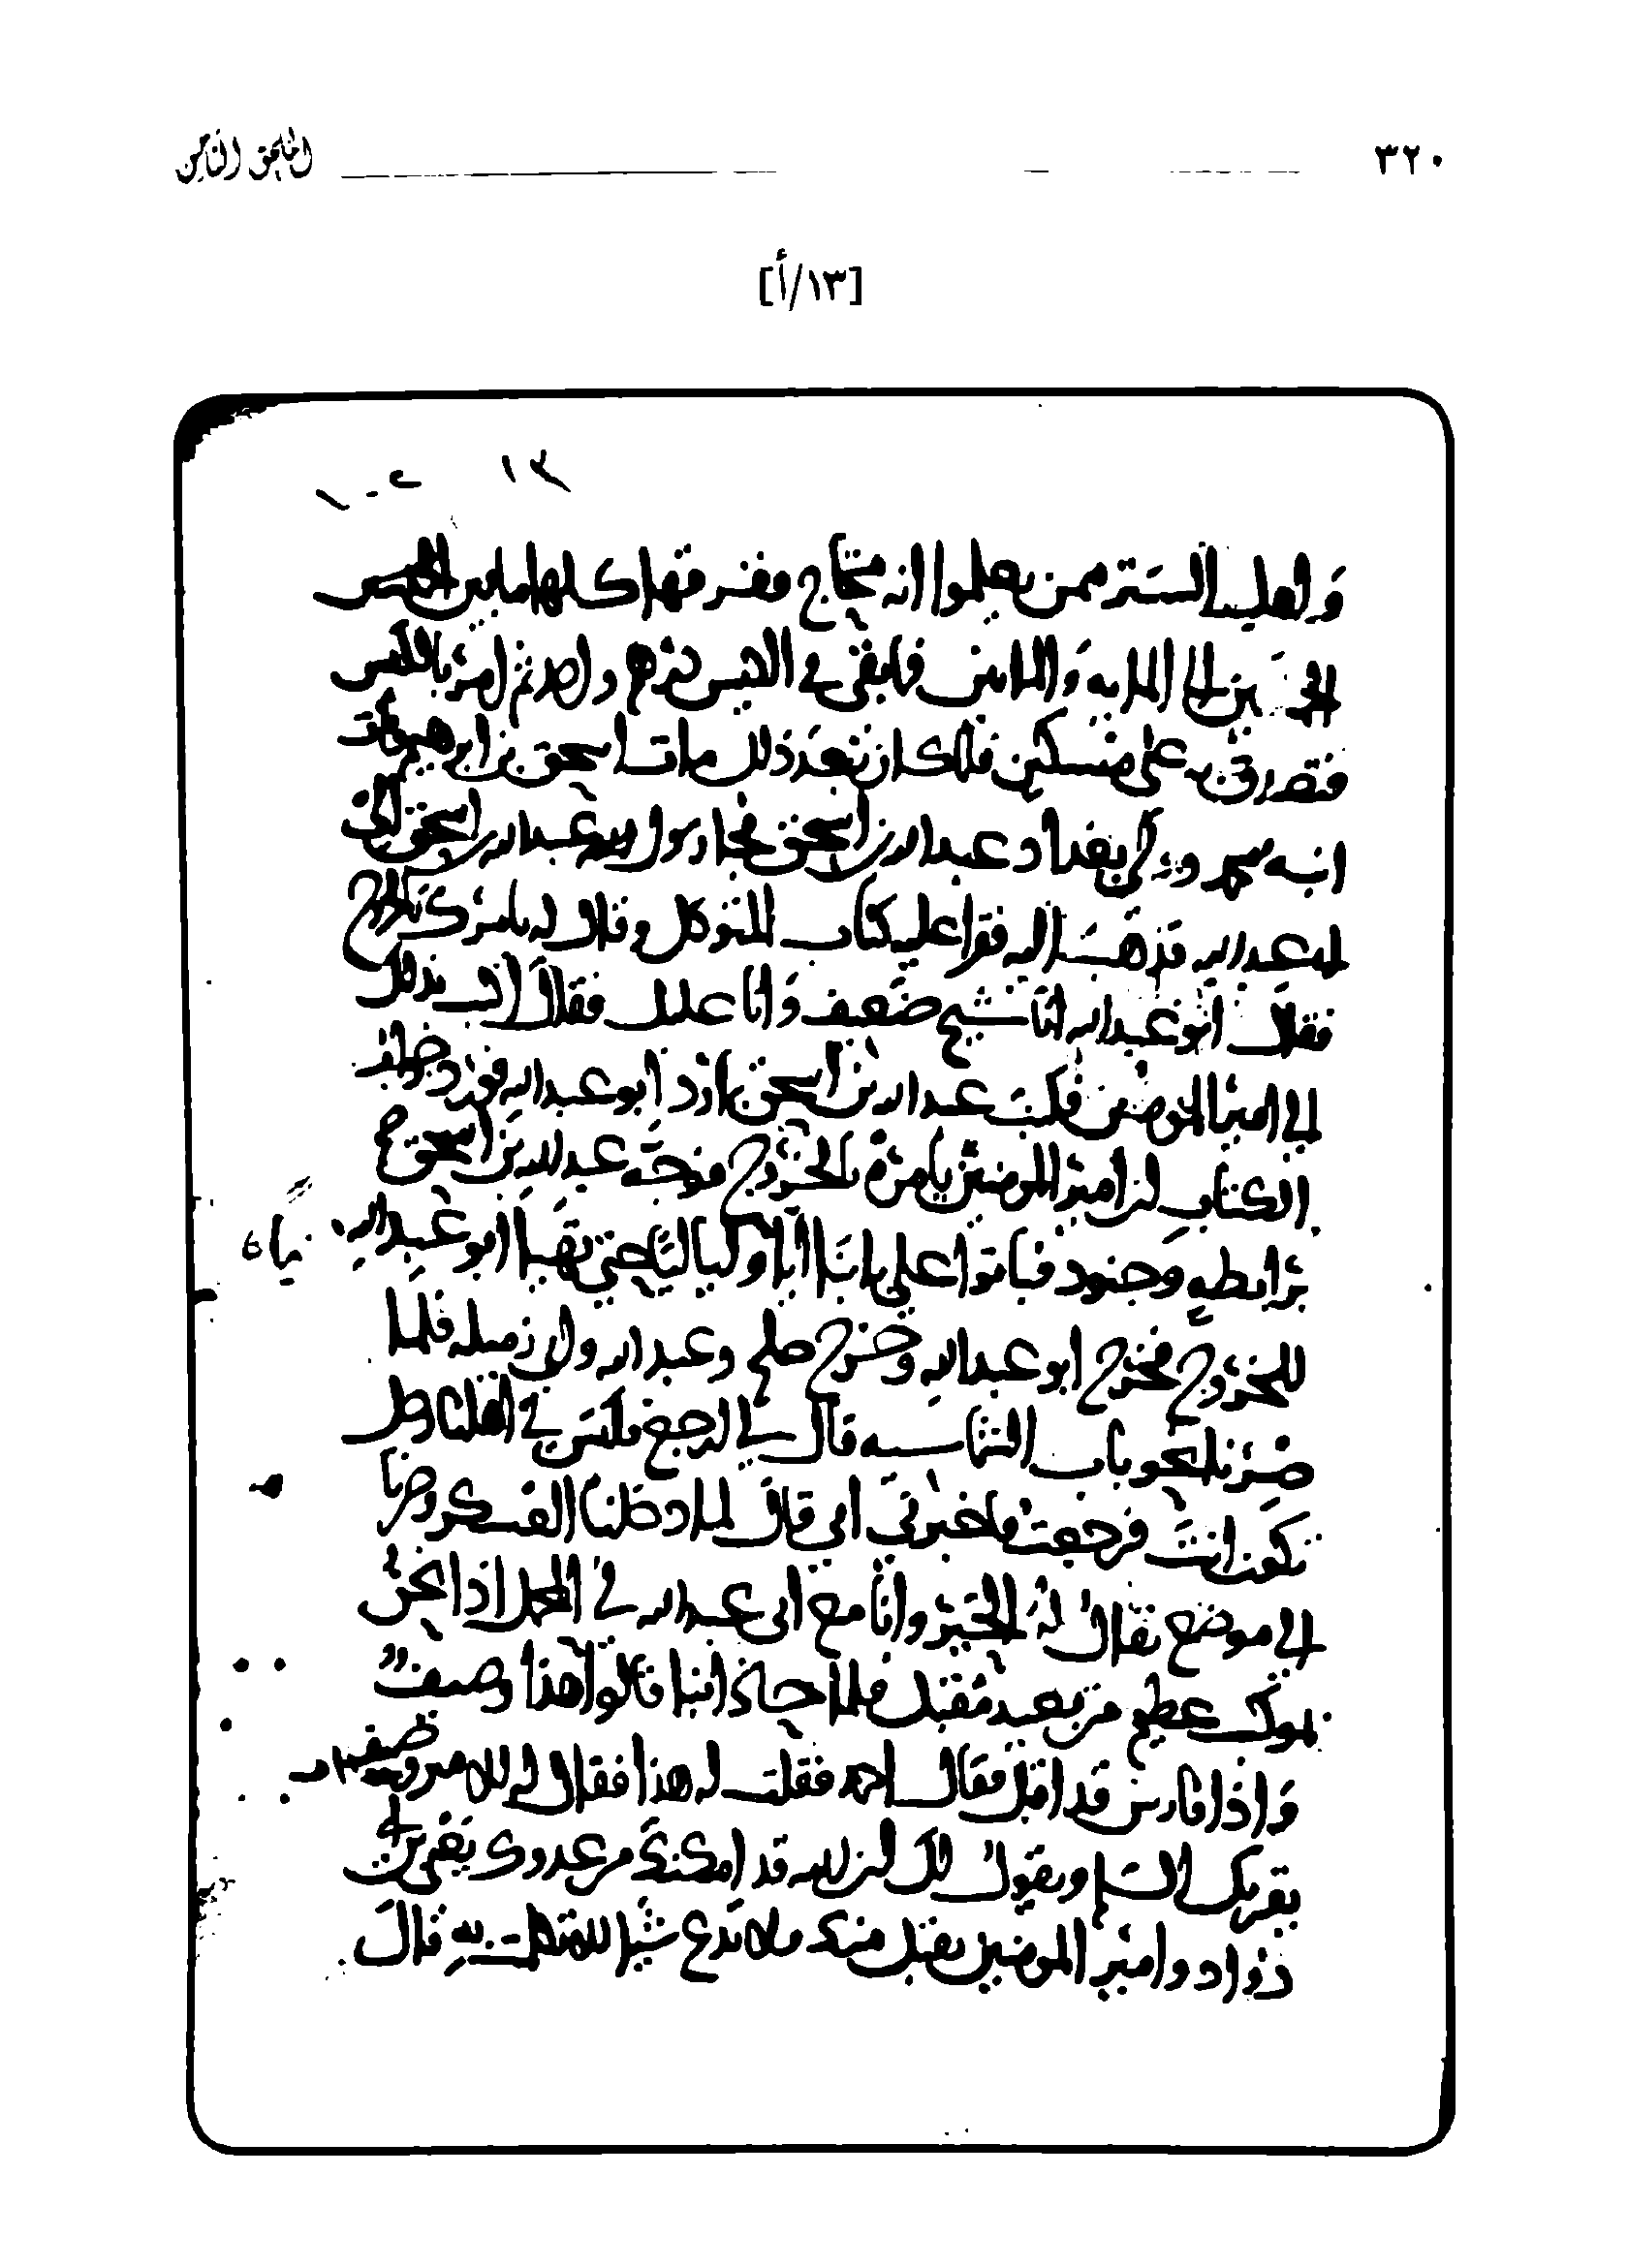 ٣٢٠ الملحق الثامن
[١٣/أ]
١٣
واهل الستر ممن يعلموا انه محتاج ففرقها كلها ما بين الخمسين
الى المايه والمايتين فما بقى في الكيس درهم واحد ثم امر بالكيس
فتصدق به على مسكين فلما كان بعد ذلك مات اسحق بن ابرهيم ومات
ابنه محمد وولى بغداد عبدالله بن اسحق فجا رسول عبدالله بن اسحق الى
ابى عبدالله فذهب اليه فقرا عليه كتاب المتوكل وقال له يامرك بالخروج
فقال ابو عبدالله انا شيخ ضعيف وانا عليل فقال اكتب بذلك
الى امير المومنين فكتب عبدالله بن اسحق بما رد ابو عبدالله فورد جواب
الكتاب ان امير المومنين يامره بالخروج فوجه عبدالله بن اسحق
برابطه وجنود فباتوا على بابنا اياما وليالينا حتى تهيا ابو عبدالله
للخروج فخرج ابو عبدالله وخرج صالح وعبدالله وابى زميله فلما
صرنا نحو باب الشماسيه قال لي ارجع فليس في اهلنا رجل
يكون انت فرجعت فاخبرنى ابى قال لما دخلنا العسكر وصرنا
الى موضع يقال له الخير وانا مع ابى عبدالله في المحمل اذا نحن
بموكب عظيم من بعيد مقبل فلما حاذانا قالوا هذا وصيف
واذا فارس قد اقبل فقال احمد فقلت له هذا فقال له الامير وصيف
يقريك السلم ويقول لك ان الله قد امكنك من عدوك يعنى بن ابى
دواد وامير المومنين يقبل منك فلا تدع شيا الا تكلمت به قال